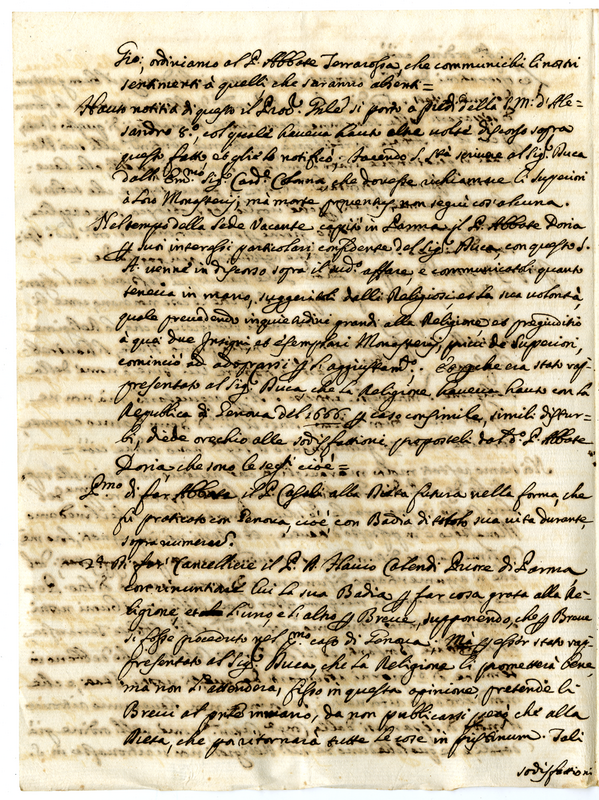 Gio; ordiniamo al P. Abbate Terrarossa, che communichi li nostri
sentimenti à quelli che saranno absenti=
Hauta notitia di questo il Prole si portò a piedi della S.M: d'Ale-
sandro 8.º, col quale haveva hauto altre volte discorso sopra
questo fatto, e glie lo notificò; facendo S. Stà scrivere al Sigr Duca
dall' Emmo Sigr Carde Colonna, che dovesse richiamare li superiori
à loro Monasterij, mà morte non seguì cosa alcuna.
Nel tempo della Sede Vacante capitò in Parma il P. Abbate Doria
p suoi interessi particolari, confidente del Sigr Duca, con questo S.
A. venne in discorso sopra il sudo affare, e communicatoli quanto
teneva in mano, suggeritoli dalli Religiosi et la sua volontà,
quale prevedendo inquietudini grandi alla Religione, et pregiuditio
à quei due Insigni, et esemplari Monasterij, privi de superiori,
cominciò ad adoprarsi p li aggiustamti. e perche era stato rap-
presentato al Sigr Duca che la Religione haveva hauto con la
Republica di Genova del 1666. p caso consimile, simili distur-
bi, diede orechio alle sodisfattioni proposteli dal do P. Abbate
Doria, che sono le segti cioè=
Pmo di far Abbate il P. Casali alla Dieta futura nella forma, che
fù praticato con Genova, cioè con Badia di titolo sua vita durante,
sopranumero.
2º Di far Cancelliere il P. D. Flavio Calendi Priore di Parma
con lui la sua Badia p far cosa grata alla Re-
ligione, et l'uno, e l'altro p Breve, supponendo, che p Breve
si fosse proceduto nel pmo caso di Genova. Mà p esser stato rap-
presentato al Sigr Duca, che la Religione li prometterà bene,
mà non l'attenderà, fisso in questa opinione pretende li
Brevi al pnte in mano, da non publicarsi però che alla
Dieta, che poi ritornarà tutte le cose in pristinum. Tali
sodisfattioni